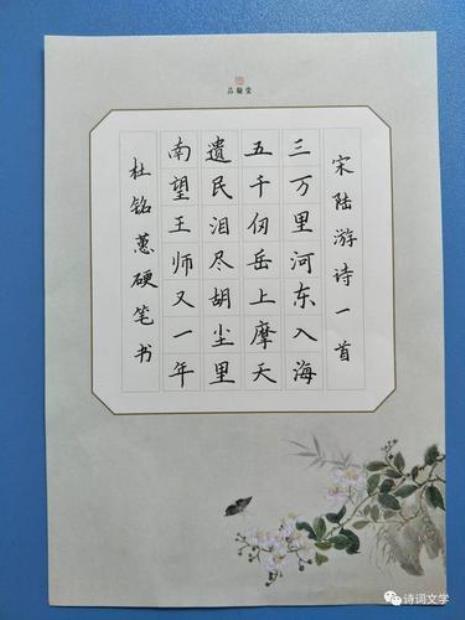 品翰堂
宋陆游诗一首
三万里河东入海
五千仞岳上摩天
遗民泪尽胡尘里
南望王师又一年
杜铭蕙硬笔书
诗词文学